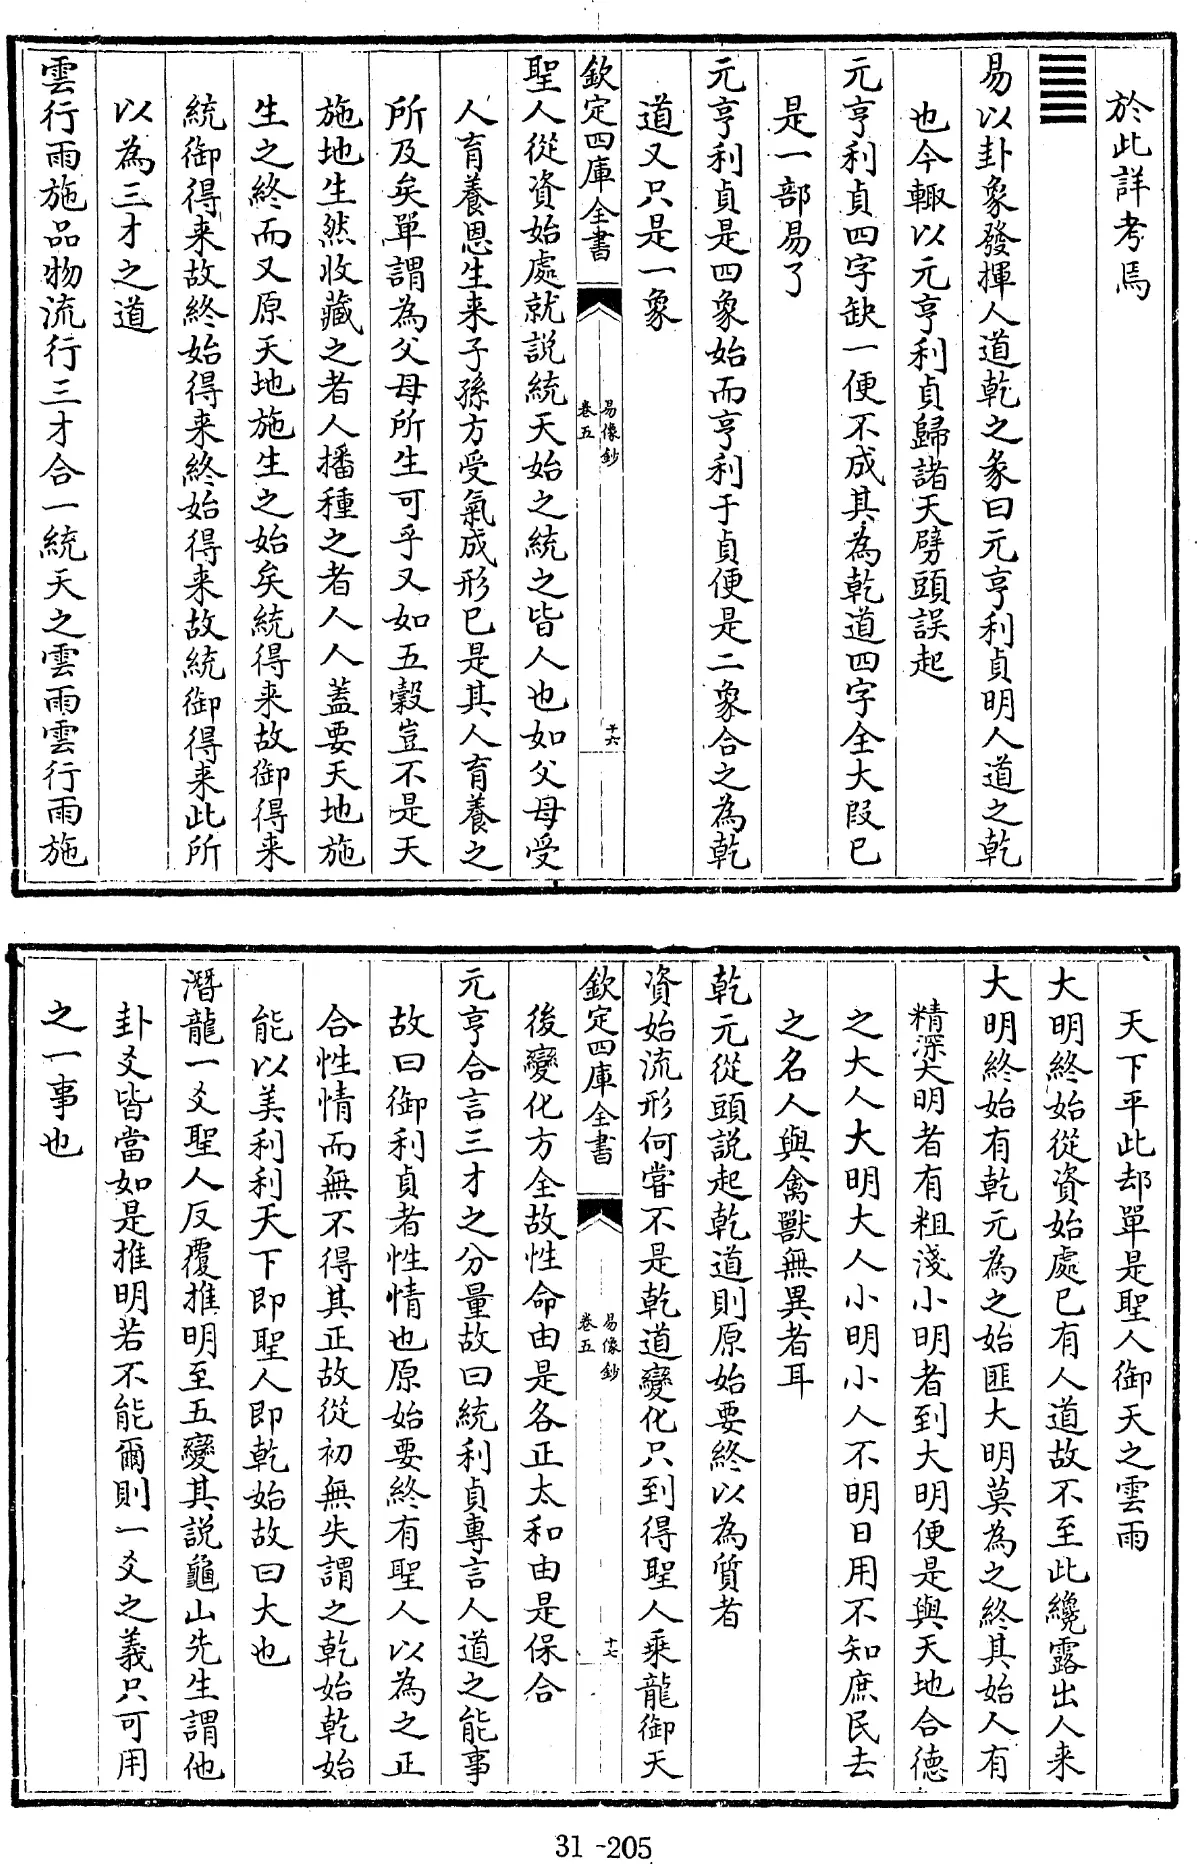 於此詳考焉
易以卦象發揮人道乾之彖曰元亨利貞明人道之乾
也今輙以元亨利貞歸諸天劈頭誤起
元亨利貞四字缺一便不成其為乾道四字全大段已
是一部易了
元亨利貞是四象始而亨利于貞便是二象合之為乾
道又只是一象
欽定四庫全書
易像鈔
卷五
十六
聖人從資始處就説統天始之統之皆人也如父母受
人育養恩生来子孫方受氣成形已是其人育養之
所及矣單謂為父母所生可乎又如五穀豈不是天
施地生然收藏之者人播種之者人人蓋要天地施
生之終而又原天地施生之始矣統得来故御得来
統御得来故終始得来終始得来故統御得来此所
以為三才之道
雲行雨施品物流行三才合一統天之雲雨雲行雨施
天下平此却單是聖人御天之雲雨
大明終始從資始處已有人道故不至此纔露出人来
大明終始有乾元為之始匪大明莫為之終其始人有
精深大明者有粗淺小明者到大明便是與天地合德
之大人大明大人小明小人不明日用不知庶民去
之名人與禽獸無異者耳
乾元從頭説起乾道則原始要終以為質者
資始流形何嘗不是乾道變化只到得聖人乘龍御天
欽定四庫全書
易像鈔
卷五
十七
後變化方全故性命由是各正太和由是保合
元亨合言三才之分量故曰統利貞專言人道之能事
故曰御利貞者性情也原始要終有聖人以為之正
合性情而無不得其正故從初無失謂之乾始乾始
能以美利利天下即聖人即乾始故曰大也
潛龍一爻聖人反覆推明至五變其説龜山先生謂他
卦爻皆當如是推明若不能爾則一爻之義只可用
之一事也
31-205